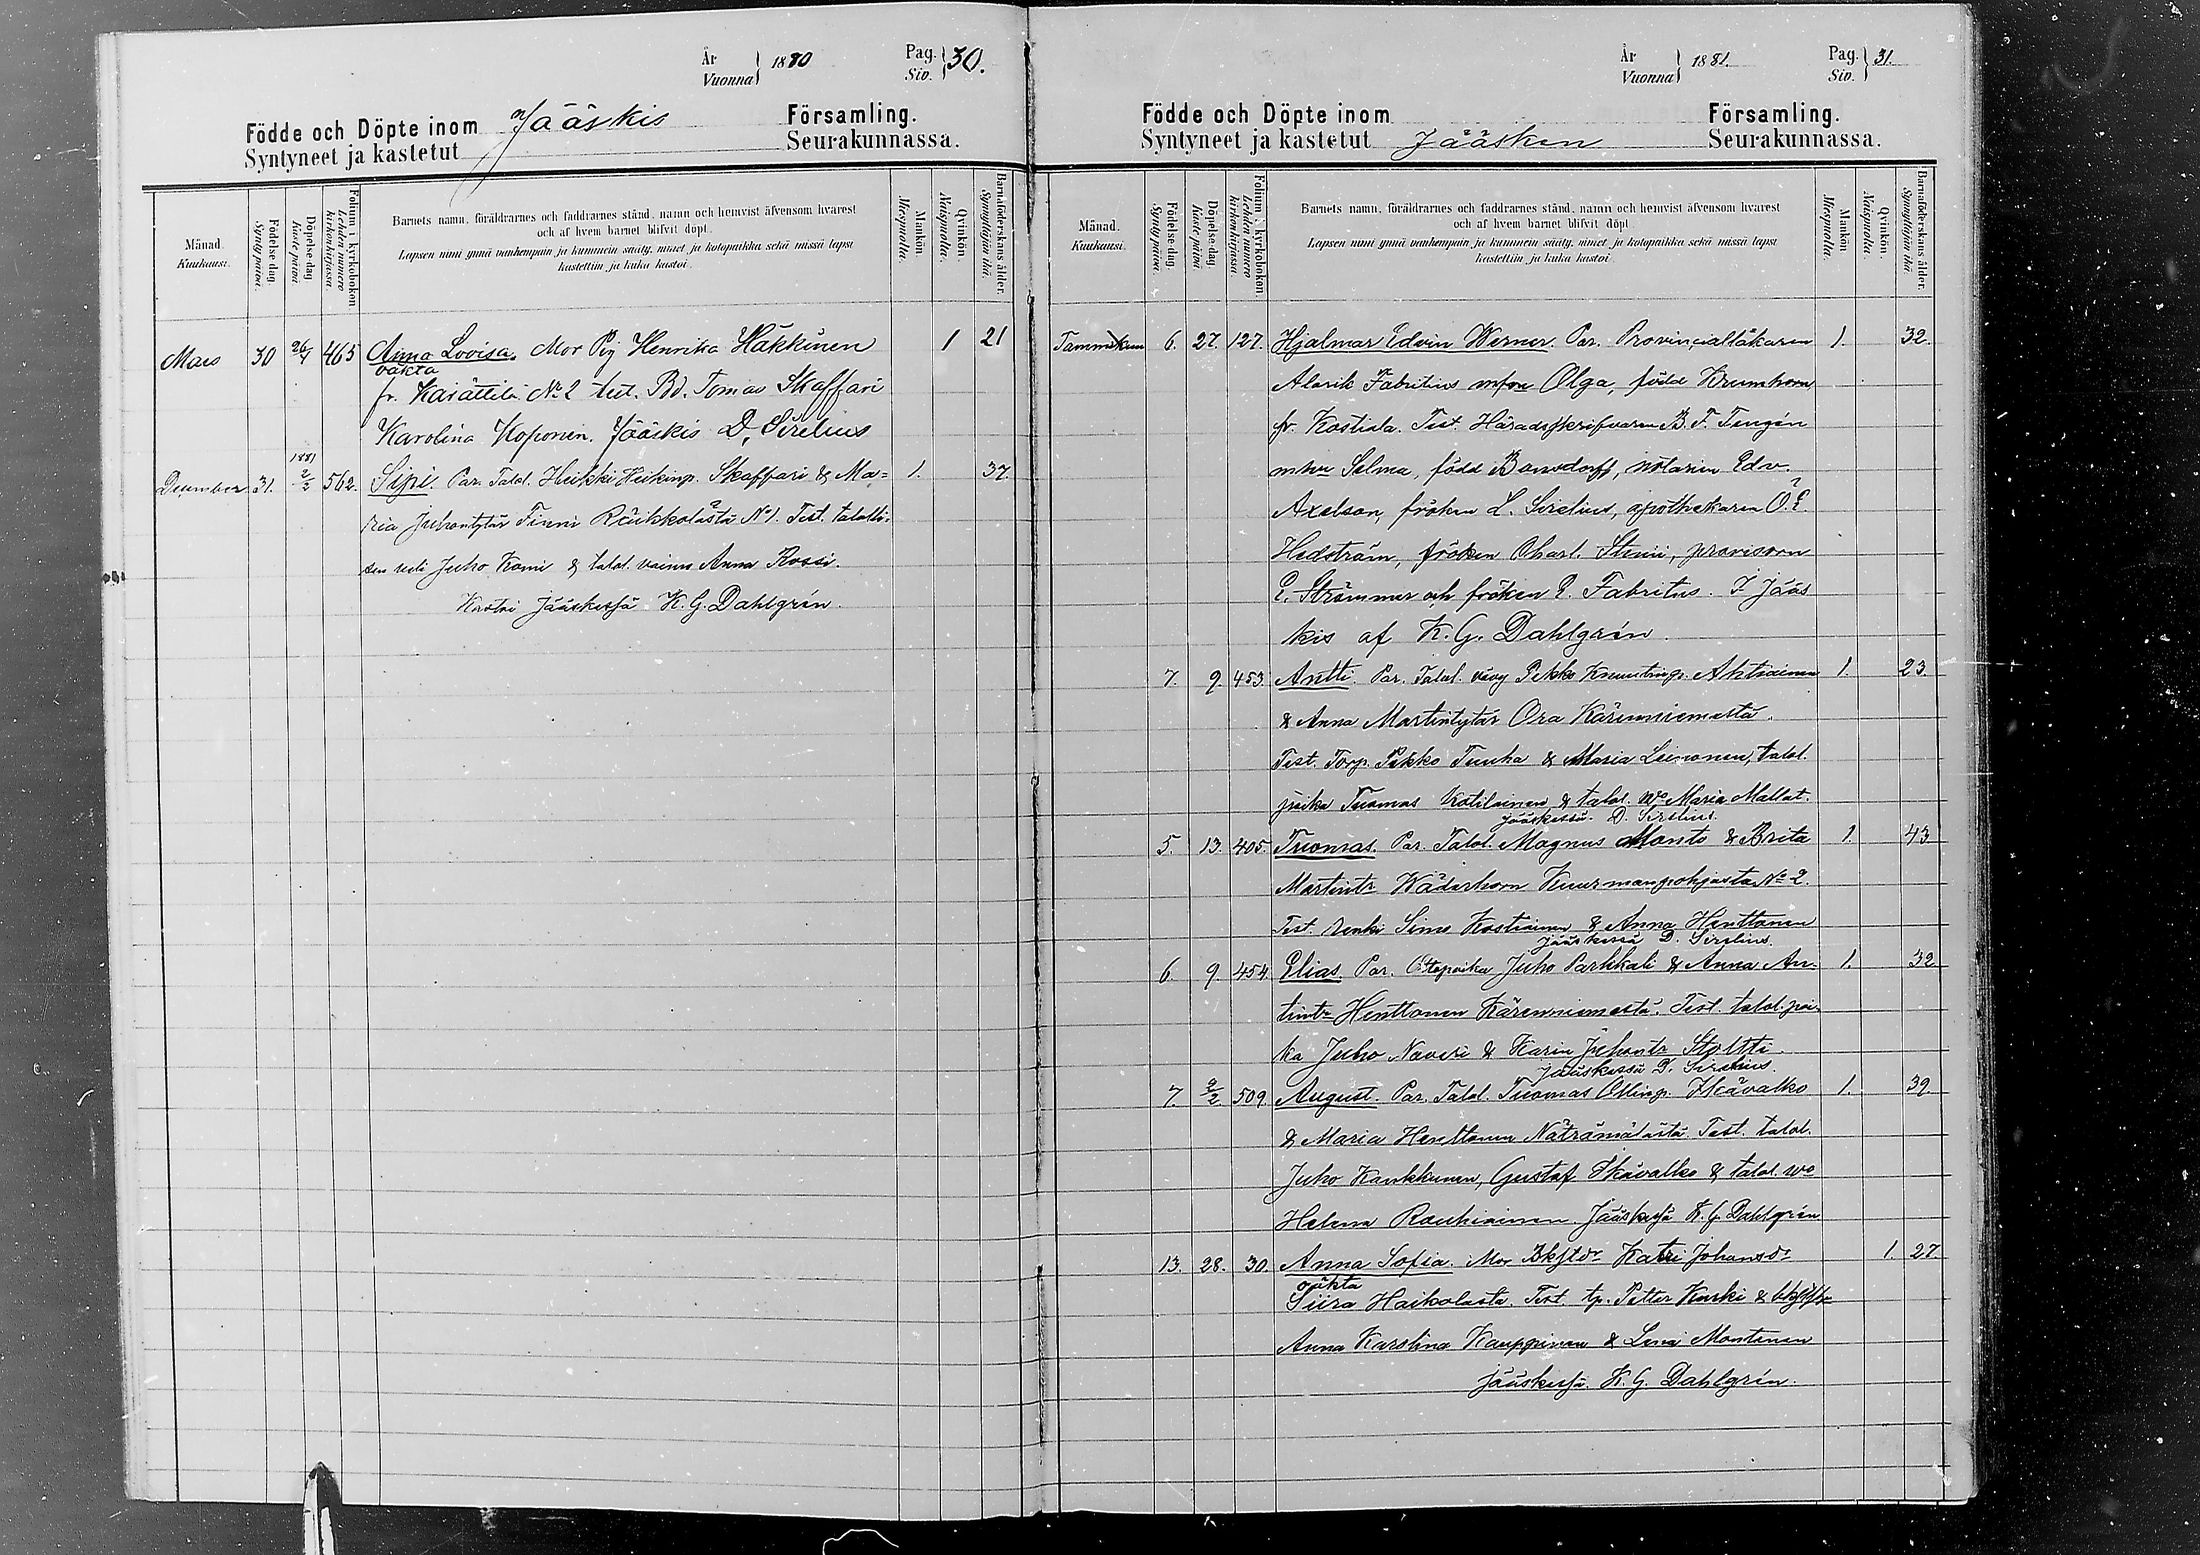 År
Vuonna
1880
Pag.
Siv.
30.
Födde och Döpte inom Jääskis Församling.
Syntyneet ja kastetut Seurakunnassa.
Månad.
Kuukausi.
Födelse-dag.
Syntypäivä.
Döpelse-dag.
Kastepäivä.
Folium i kyrkoboken.
Lehden numero kirkonkirjassa.
Barnets namn, föräldrarnes och faddrarnes stånd, namn och hemvist äfvensom hvarest
och af hvem barnet blifvit döpt.
Lapsen nimi ynnä vanhempain ja kummein sääty, nimet ja kotopaikka sekä missä lapsi
kastettiin ja kuka kastoi.
Mankön.
Miespuolta.
Qvinkön.
Naispuolta.
Barnaföderskans ålder.
Synnyttäjän ikä.
Mars 30 26/4 465 Anna Lovisa. Mor Pig Henrika Häkkinen 1 21
oäkta
fr. Karättilä No 2 Test. Bd. Tomas Skaffari
Karolina Koponen. Jääskis D. Sirelius
1881
December 31. 2/2 562. Sipi. Par. Talol. Heikki Heikinp. Skaffari & Ma= 1. 37.
ria Juhontytär Finni Räikkolästä No 1. Test. talolli-
sen Juho Komi & talol. vaimo Anna Rossi.
Kastoi Jääskessä K. G. Dahlgrén.
År
Vuonna
1881.
Pag.
Siv.
31.
Födde och Döpte inom Församling.
Syntyneet ja kastetut Jääsken Seurakunnassa.
Månad.
Kuukausi.
Födelse-dag.
Syntypäivä.
Döpelse-dag.
Kastepäivä.
Folium i kyrkoboken.
Lehden numero kirkonkirjassa.
Barnets namn, föräldrarnes och faddrarnes stånd, namn och hemvist äfvensom hvarest
och af hvem barnet blifvit döpt.
Lapsen nimi ynnä vanhempain ja kummein sääty, nimet ja kotopaikka sekä missä lapsi
kastettiin ja kuka kastoi.
Mankön.
Miespuolta.
Qvinkön.
Naispuolta.
Barnaföderskans ålder.
Synnyttäjän ikä.
Tammikuu 6. 27. 127. Hjalmar Edvin Werner. Par. Provincialläkaren 1. 32.
Alarik Fabritius Olga, född Krumhorn,
fr. Kostiala. Test. Häradsskrifvaren B. F. Tengén
Selma, född Bonsdorff, notarien Edv.
Axelson, fröken L. Sirelius, apothekaren O. E.
Hedström, fröken Charl. provisorn
E. Strömmer och fröken E. Fabritus. I Jääs
kis af K. G. Dahlgrén.
7. 9. 453. Antti. Par. Talol. vävy Pekko Ahtiainen 1. 23.
& Anna Martintytär Ora Kärenniemeltä.
Test. Torp. Pekko Tunha & Maria Leinonen, talol.
poika Tuomas Kotilainen & talol. wo Maria Mallat.
Jääskessä. D. Sirelius.
5. 13. 405. Tuomas. Par. Talol. Magnus Monto & Brita 1. 43
Martintr Wäderhorn Kuurmanpohjasta No 2.
Test. renki Simo Kostiainen & Anna Henttonen
Jääskessä D. Sirelius.
6. 9. 454 Elias. Par. Ottopoika Juho Parkkali & Anna An- 1. 32
tintr Henttonen Kärenniemeltä. Test. talol. poi-
ka Juho Naveri & Karin Juhontr Stoltti.
Jääskessä D. Sirelius.
7. 2/2 509. August. Par. Talol. Tuomas Ollinp. Ikävalko 1. 39.
& Maria Henttonen Näträmälästä. Test. talol.
Juho Kankkunen, Gustaf Ikävalko & talol. wo
Helena Rauhiainen. Jääskessä K. G. Dahlgrén
13. 28. 30. Anna Sofia. Mor Katri Johansdr 1. 27
oäkta
Siira Haikolasta. Test. tp. Petter Kurki &
Anna Karolina Kauppinen & Lena Montonen
Jääskessä. K. G. Dahlgrén.